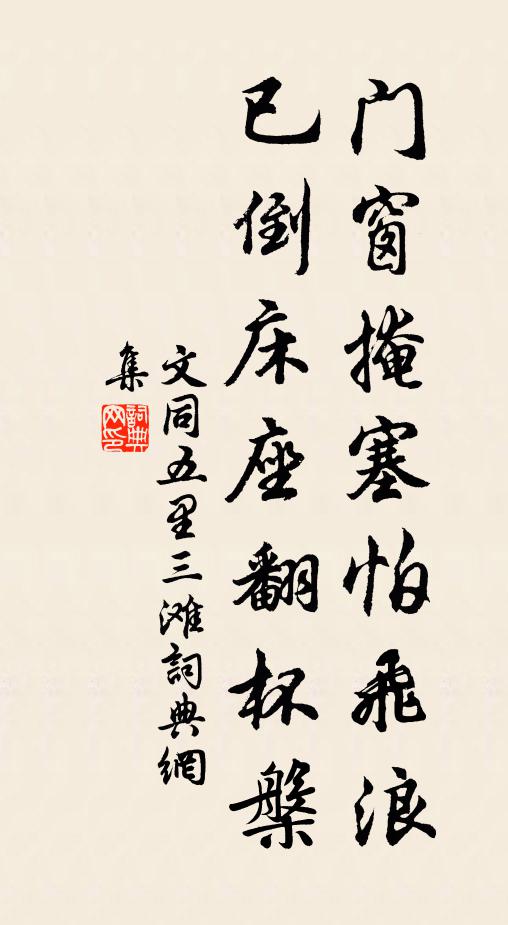 门窗掩塞怕飛浪
已倒床座翻杯槃
文同五里三滩詞典網
集
詞典网印